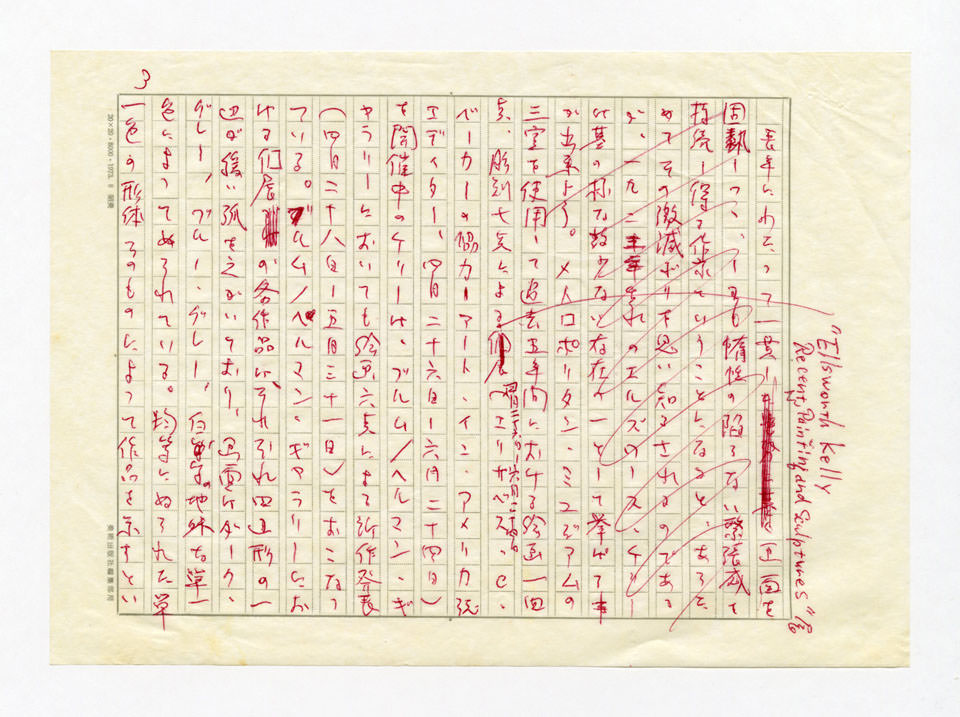 "Ellsworth Kelly
Recent Painting and Sculptures" 展
長年にわたって一貫し 画面を
固執しつつ、しかも惰性の陥らない緊張感を
持続し得る作家ということになると、あらた
めてその数減ぶりを思い知らされるのである
が、一九二三年生れのエルズワース・ケリー
は其の稀な数少ない存在の一人として挙げる事
が出来よう。メトロポリタン・ミュゼアムの
三室を使用して過去五年間における絵画一四
点、彫刻七点による個展(四月二六日―六月二四日)(エリザベス・C・
ベーカーの協力―アート・イン・アメリカ誌
エディター、四月二十六日―六月二十四日)
を開催中のケリーは、ブルム/ヘルマン・ギ
ャラリーにおいても絵画六点による新作発表
(四月二十八日―五月三十一日)をおこなっ
ている。ブルム/ヘルマン・ギャラリーにお
ける個展の各作品は、それぞれ四辺形の一
辺が緩い弧をえがいており、画面はダーク・
グレー、ブルー・グレー、 地味な単一
色によってぬられている。均等にぬられた単
一色の形体そのものによって作品を示すとい
3
20×20・8000・1973. 8 明東
美術出版社編集部用